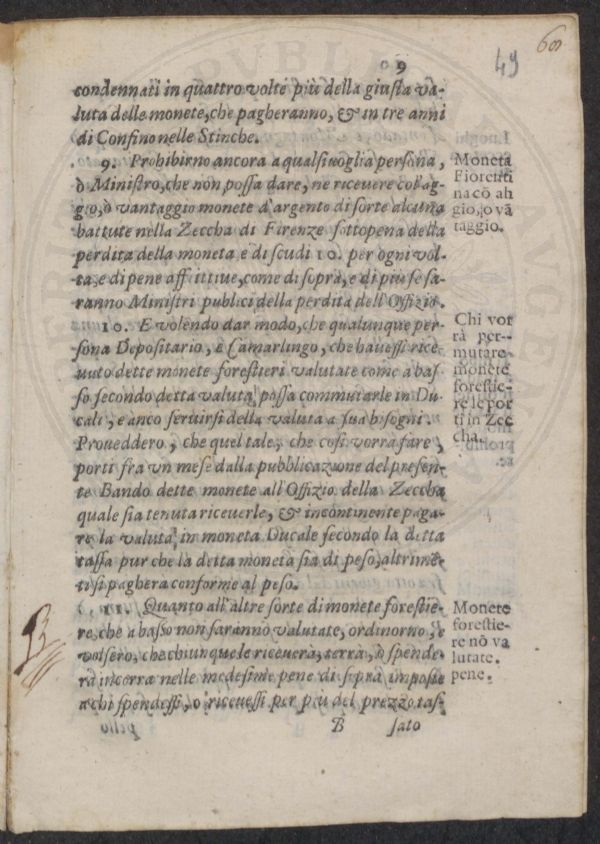 9
49
60
condennati in quattro volte più della giusta va-
luta delle monete, che pagheranno, & in tre anni
di Confino nelle Stinche.
9. Prohibirno ancora a qualsivoglia persona,
ò Ministro, che non possa dare, ne ricevere col'ag-
gio, ò vantaggio monete d'argento di sorte alcuna
battute nella Zeccha di Firenze sottopena della
perdita della moneta e di scudi 10. per ogni vol-
ta, e di pene afflittive, come di sopra, e di più se sa-
ranno Ministri publici della perdita dell'Offizio.
Moneta
Fiorenti
na cō ah
gio, o vā
taggio.
10. E volendo dar modo, che qualunque per-
sona Depositario, e Camarlingo, che havessi rice-
vuto dette monete forestieri valutate come a bas-
so secondo detta valuta, possa commutarle in Du-
cali, e anco servirsi della valuta a sua bisogni.
Proveddero, che quel tale, che cosi vorra fare,
porti fra un mese dalla pubblicazione del presen-
te Bando dette monete all'Offizio della Zeccha
quale sia tenuta riceverle, & incontinente paga-
re la valuta in moneta Ducale secondo la detta
tassa pur che la detta moneta sia di peso, altrimē-
ti si paghera conforme al peso.
Chi vor
rà per-
mutare
monete
forestie-
re le por
ti in Zec
cha.
11. Quanto all'altre sorte di monete forestie-
re, che a basso non saranno valutate, ordinorno, e
volsero, che chiunque le riceverà, terrà, ò spende-
rà incorra nelle medesime pene di soprà imposte
a chi spendessi, o ricevessi per più del prezzo tas-
Monete
forestie-
re nō va
lutate.
pene.
B sato